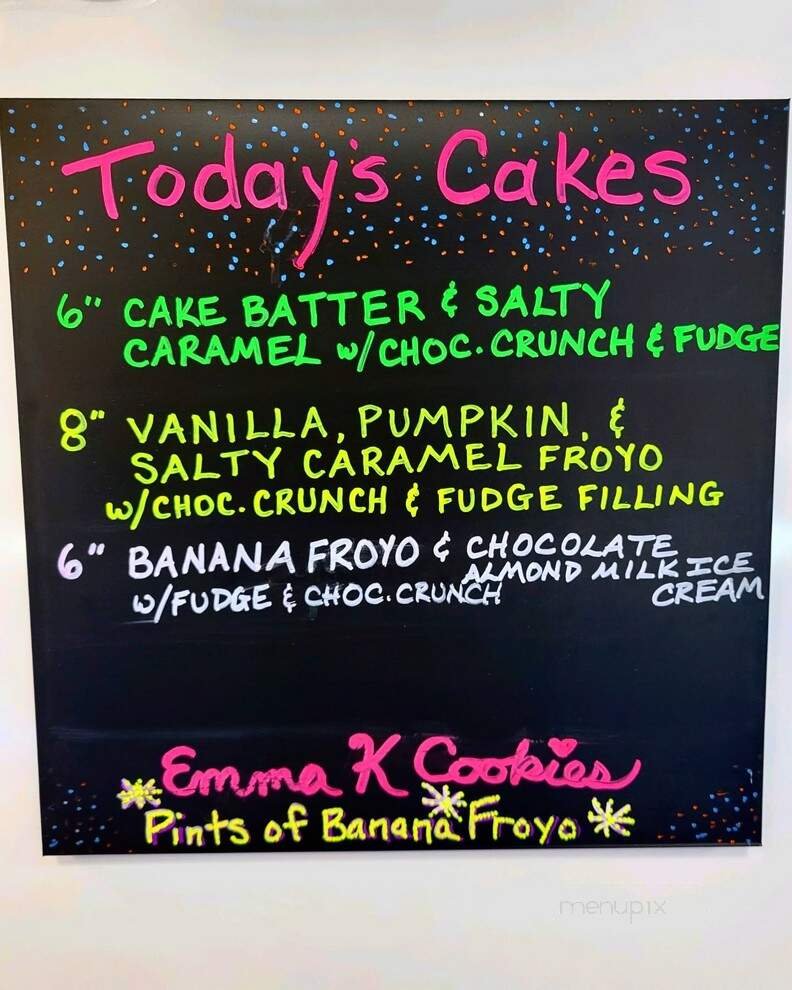 Today's Cakes
6" CAKE BATTER & SALTY
CARAMEL w/CHOC. CRUNCH & FUDGE
8" VANILLA, PUMPKIN, &
SALTY CARAMEL FROYO
w/CHOC. CRUNCH & FUDGE FILLING
6" BANANA FROYO & CHOCOLATE
ALMOND MILK ICE
w/FUDGE & CHOC. CRUNCH CREAM
Emma K Cookies
Pints of Banana Froyo
menupix